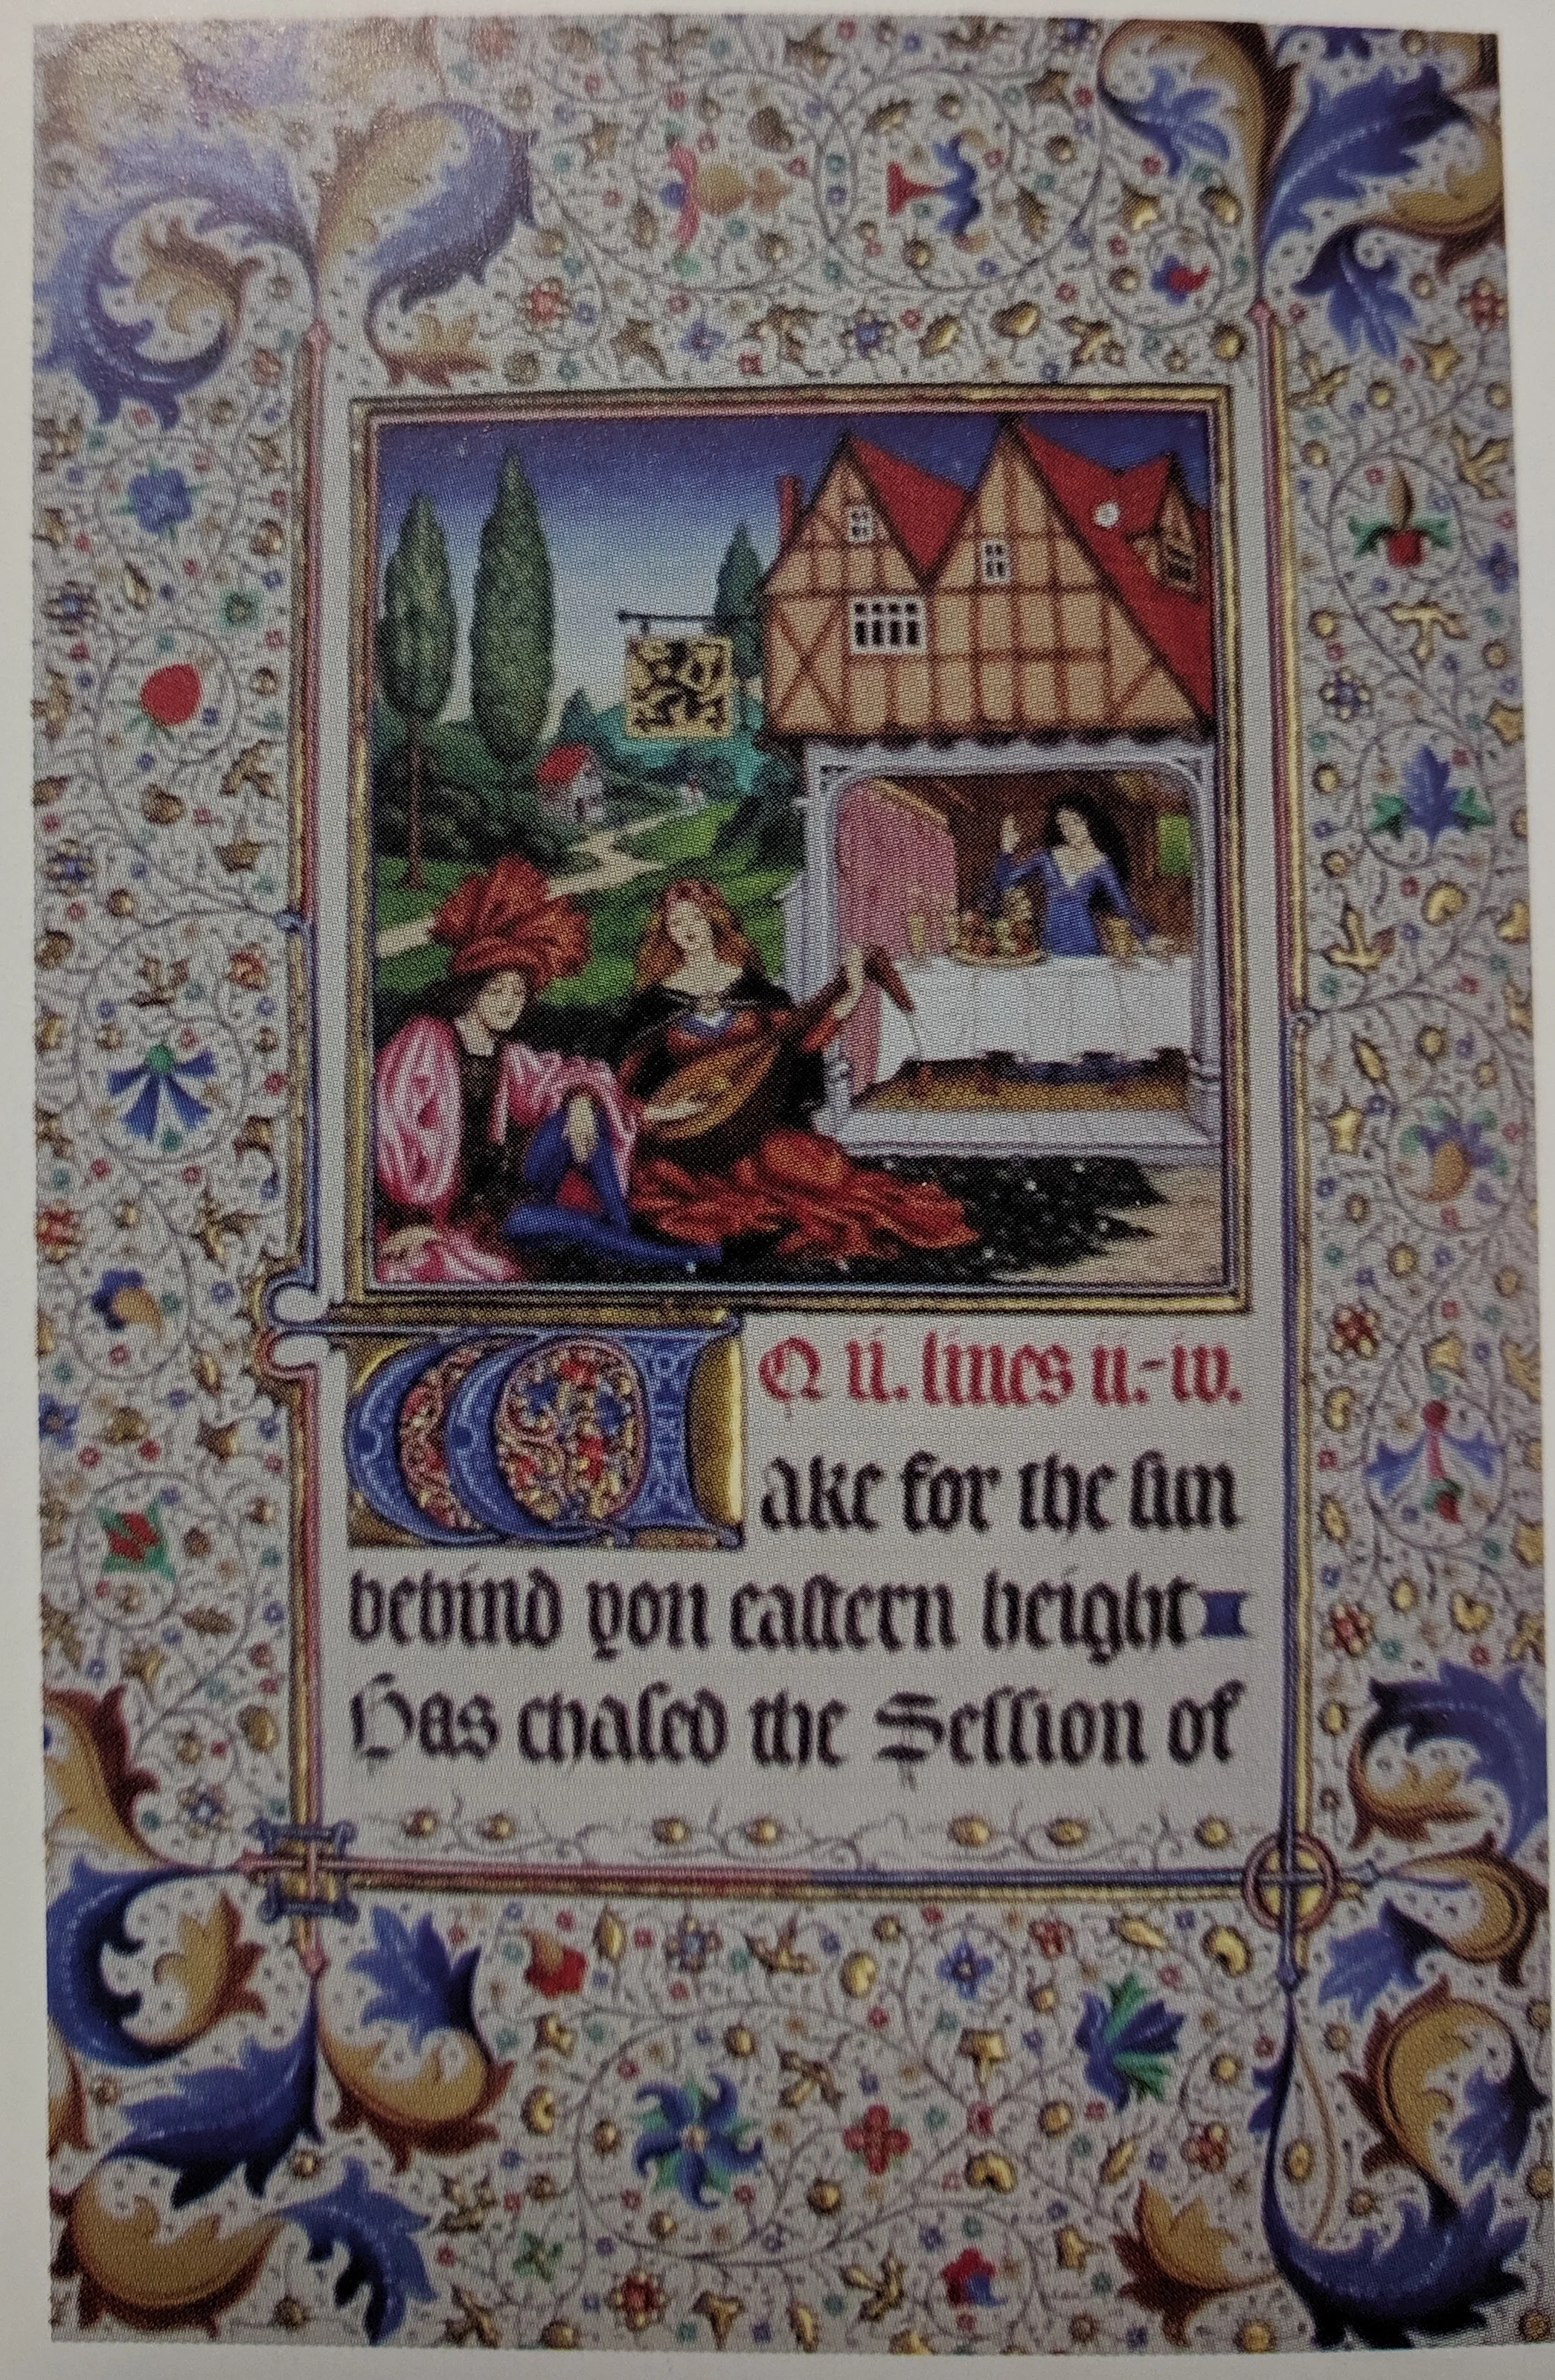 Q ii. lines ii.-iv.
Wake for the ſun
behind yon eaſtern height
Has chaſed the Seſſion of